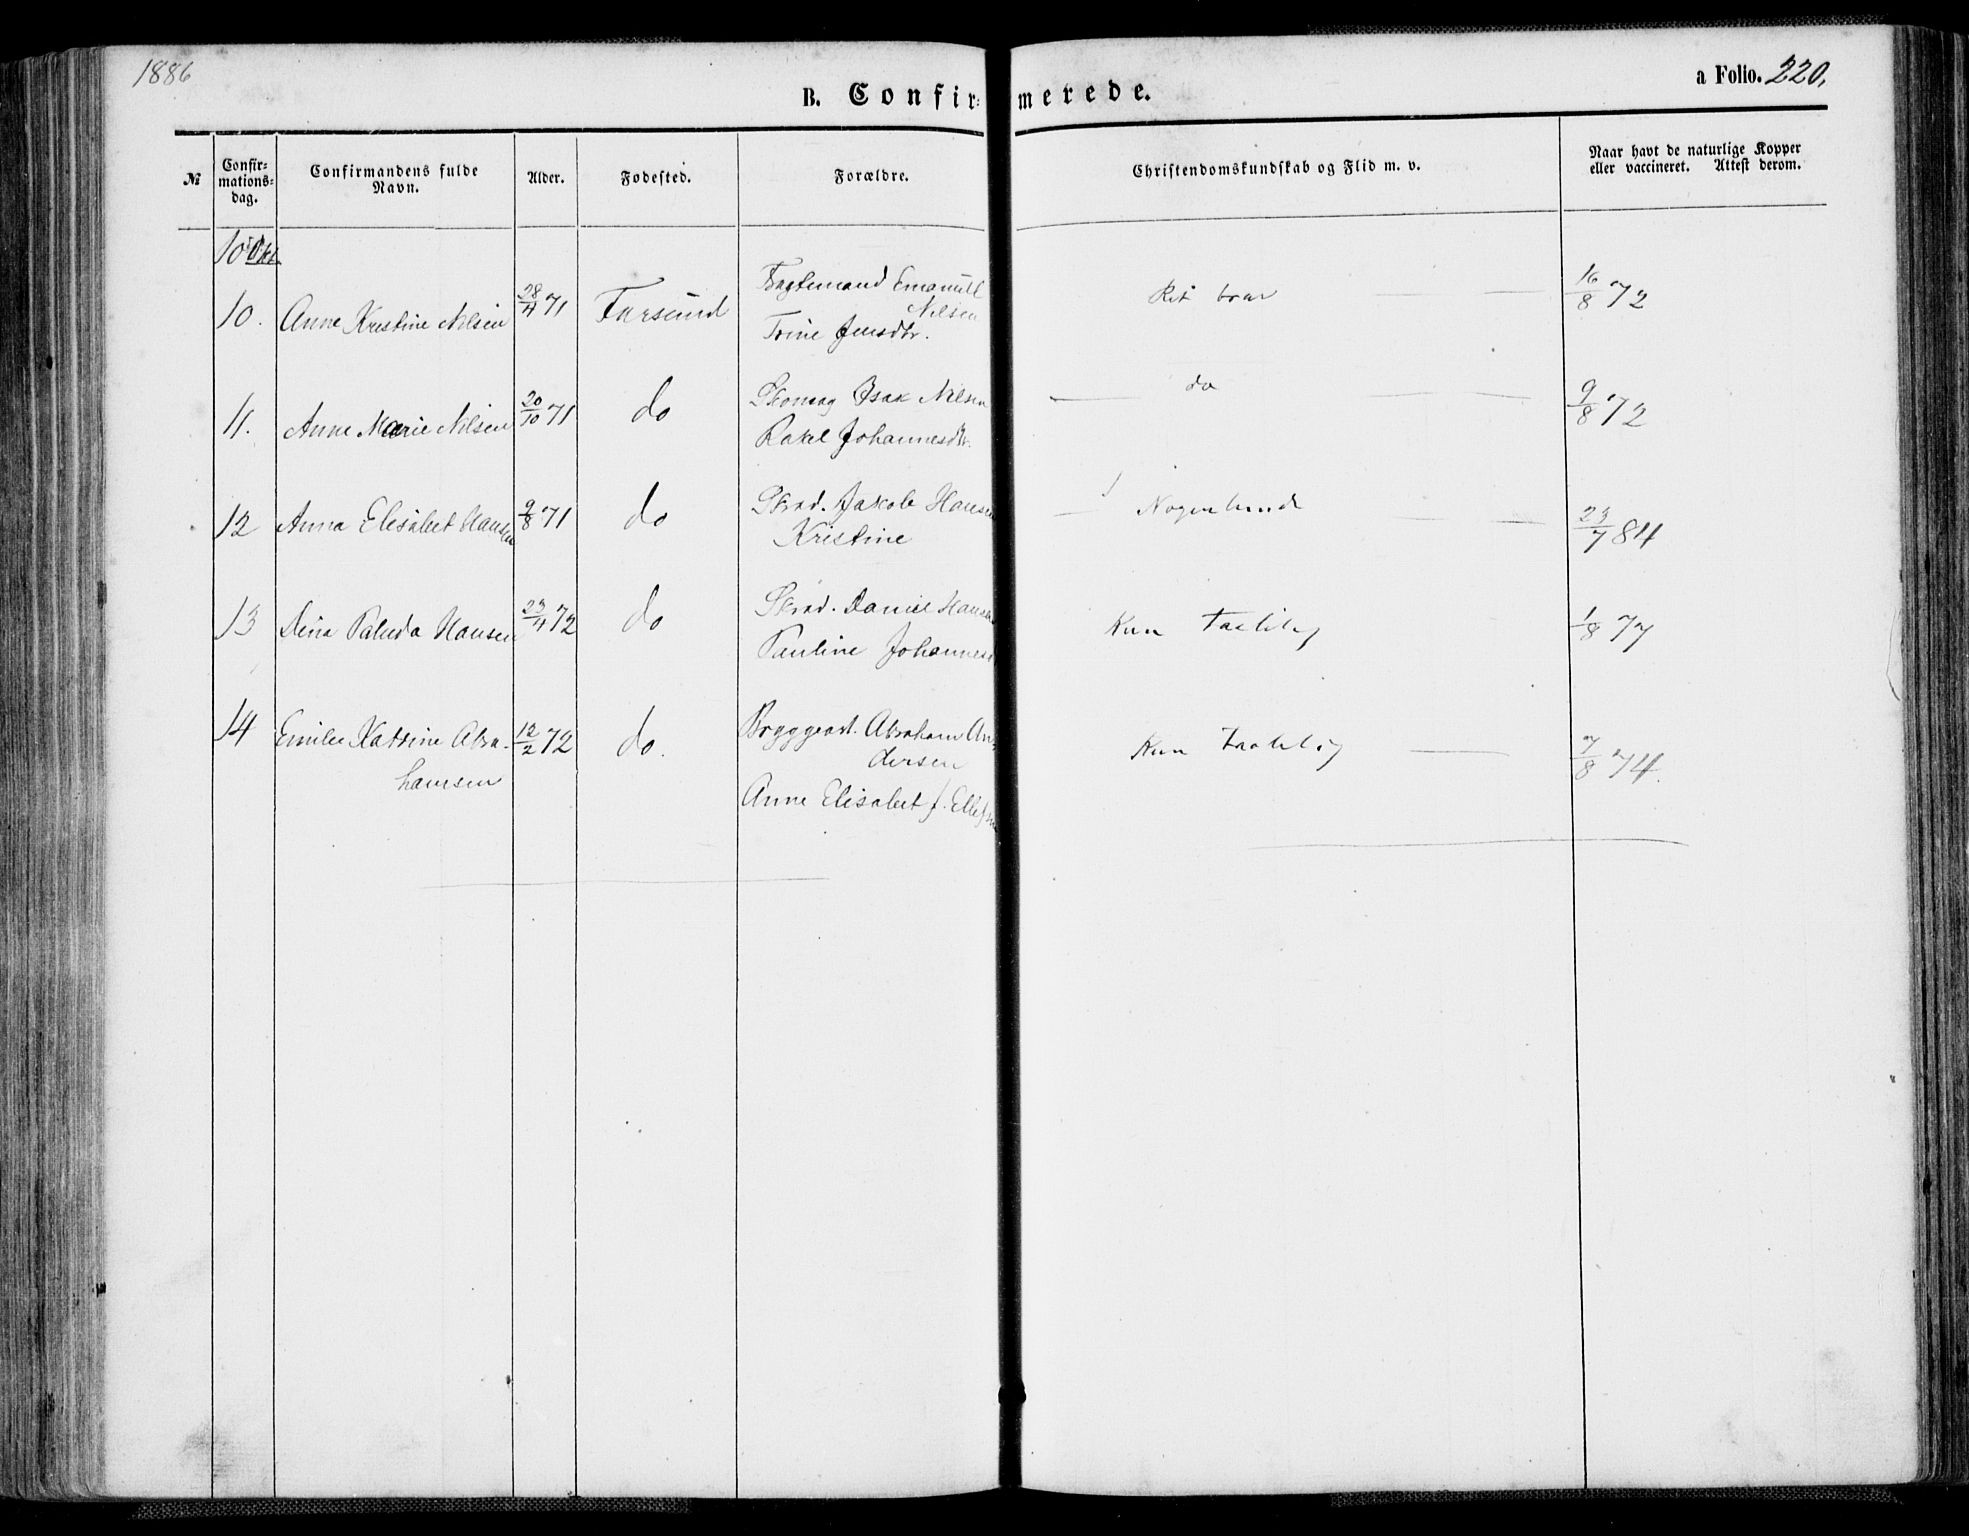 1886
B. Confirmerede.
a Folio. 220.
№
Confir-
mations-
dag.
Confirmandens fulde
Navn.
Alder.
Fødested.
Forældre.
Christendomskundskab og Flid m. v.
Naar havt de naturlige Kopper
eller vaccineret. Attest derom.
10 Okt
10. Anne Kristine Nilsen 28/4 71 Farsund Emanuel
Nilsen
Trine Jensdtr. 16/8 72
11. Anne Marie Nilsen 20/10 71 do Skomag Isak Nilsen do 9/8 72
Rakel Johannesdtr.
12 Anna Elisabet Hansen 9/8 71 do Skrad. Jakob Hansen 23/7 84
Kristine
13 Hansen 23/4 72 do Skrad. Daniel Hansen Kun Taalelig 1/8 77
Pauline Johannesd
14 Emilie Katrine Abra- 12/2 72 do. Abraham An- Kun Taalelig 7/8 74.
hamsen dersen
Anne Elisabet f. Ellefsen